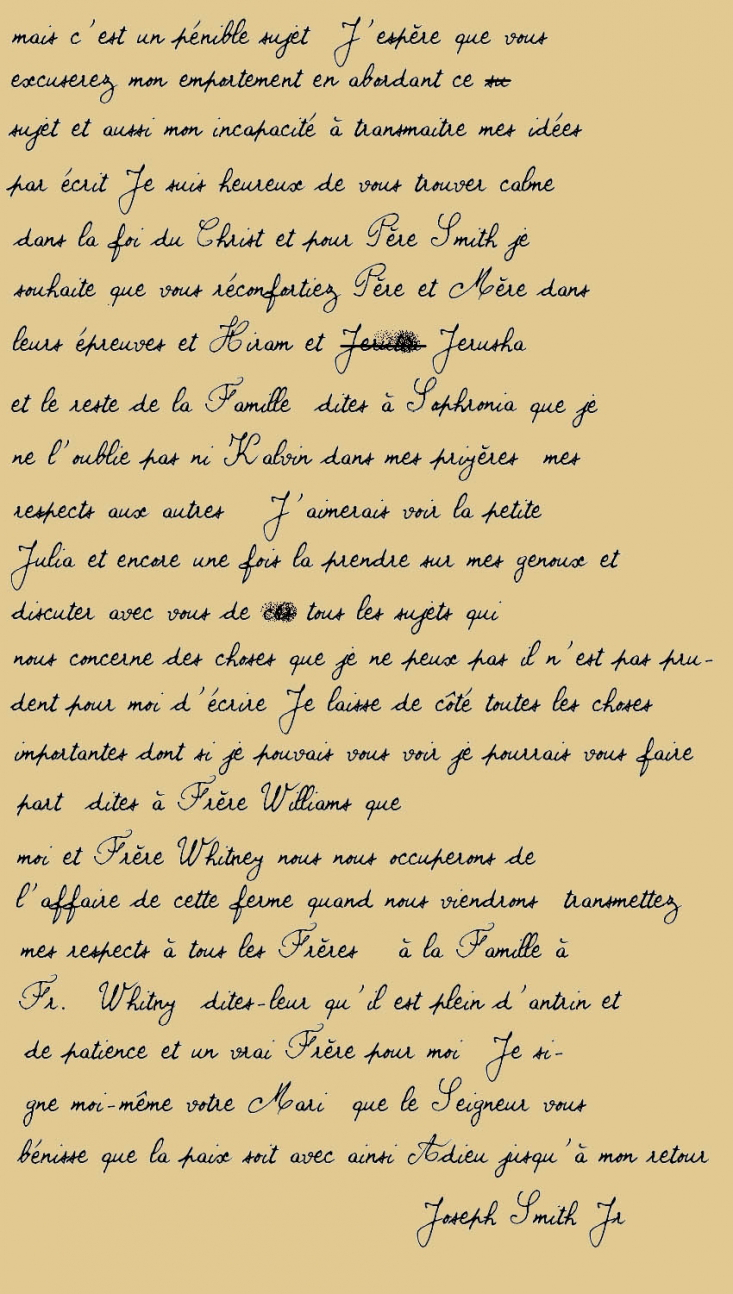 mais c'est un pénible sujet J'espère que vous
excuserez mon emportement en abordant ce su
sujet et aussi mon incapacité à transmaitre mes idées
par écrit Je suis heureux de vous trouver calme
dans la foi du Christ et pour Père Smith je
souhaite que vous réconfortiez Père et Mère dans
leurs épreuves et Hiram et Jerusha
et le reste de la Famille dites à Sophronia que je
ne l'oublie pas ni Kalvin dans mes priyères mes
respects aux autres J'aimerais voir la petite
Julia et encore une fois la prendre sur mes genoux et
discuter avec vous de tous les sujets qui
nous concerne des choses que je ne peux pas il n'est pas pru-
dent pour moi d'écrire Je laisse de côté toutes les choses
importantes dont si je pouvais vous voir je pourrais vous faire
part dites à Frère Williams que
moi et Frère Whitney nous nous occuperons de
l'affaire de cette ferme quand nous viendrons transmettez
mes respects à tous les Frères à la Famille à
Fr. Whitny dites-leur qu'il est plein d'antrin et
de patience et un vrai Frère pour moi Je si-
gne moi-même votre Mari que le Seigneur vous
bénisse que la paix soit avec ainsi Adieu jusqu'à mon retour
Joseph Smith Jr